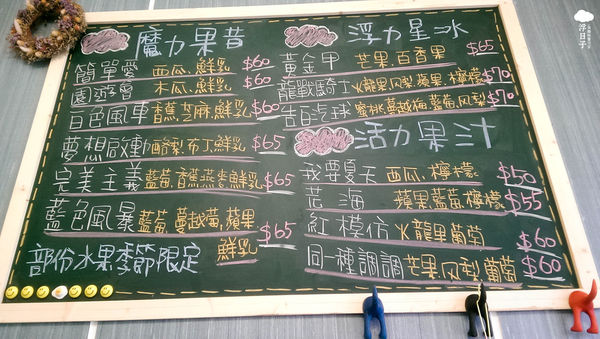 魔力果昔
簡單愛 西瓜.鮮乳 $60
園遊會 木瓜.鮮乳 $60
白色風車 香蕉.芝麻.鮮乳 $60
夢想啟動 酪梨.布丁.鮮乳 $65
完美主義 藍莓.香蕉.燕麥.鮮乳 $65
藍色風暴 藍莓.蔓越莓.蘋果 鮮乳 $65
部份水果季節限定
浮力星冰
黃金甲 芒果.百香果 $65
龍戰騎士 火龍果.鳳梨.蘋果.檸檬 $70
告白汽球 蜜桃.蔓越梅.藍莓.鳳梨 $70
活力果汁
我要夏天 西瓜.檸檬 $50
花海 蘋果.藍莓.檸檬 $55
紅模仿 火龍果.葡萄 $60
同一種調調 芒果.鳳梨.葡萄 $60
浮日子